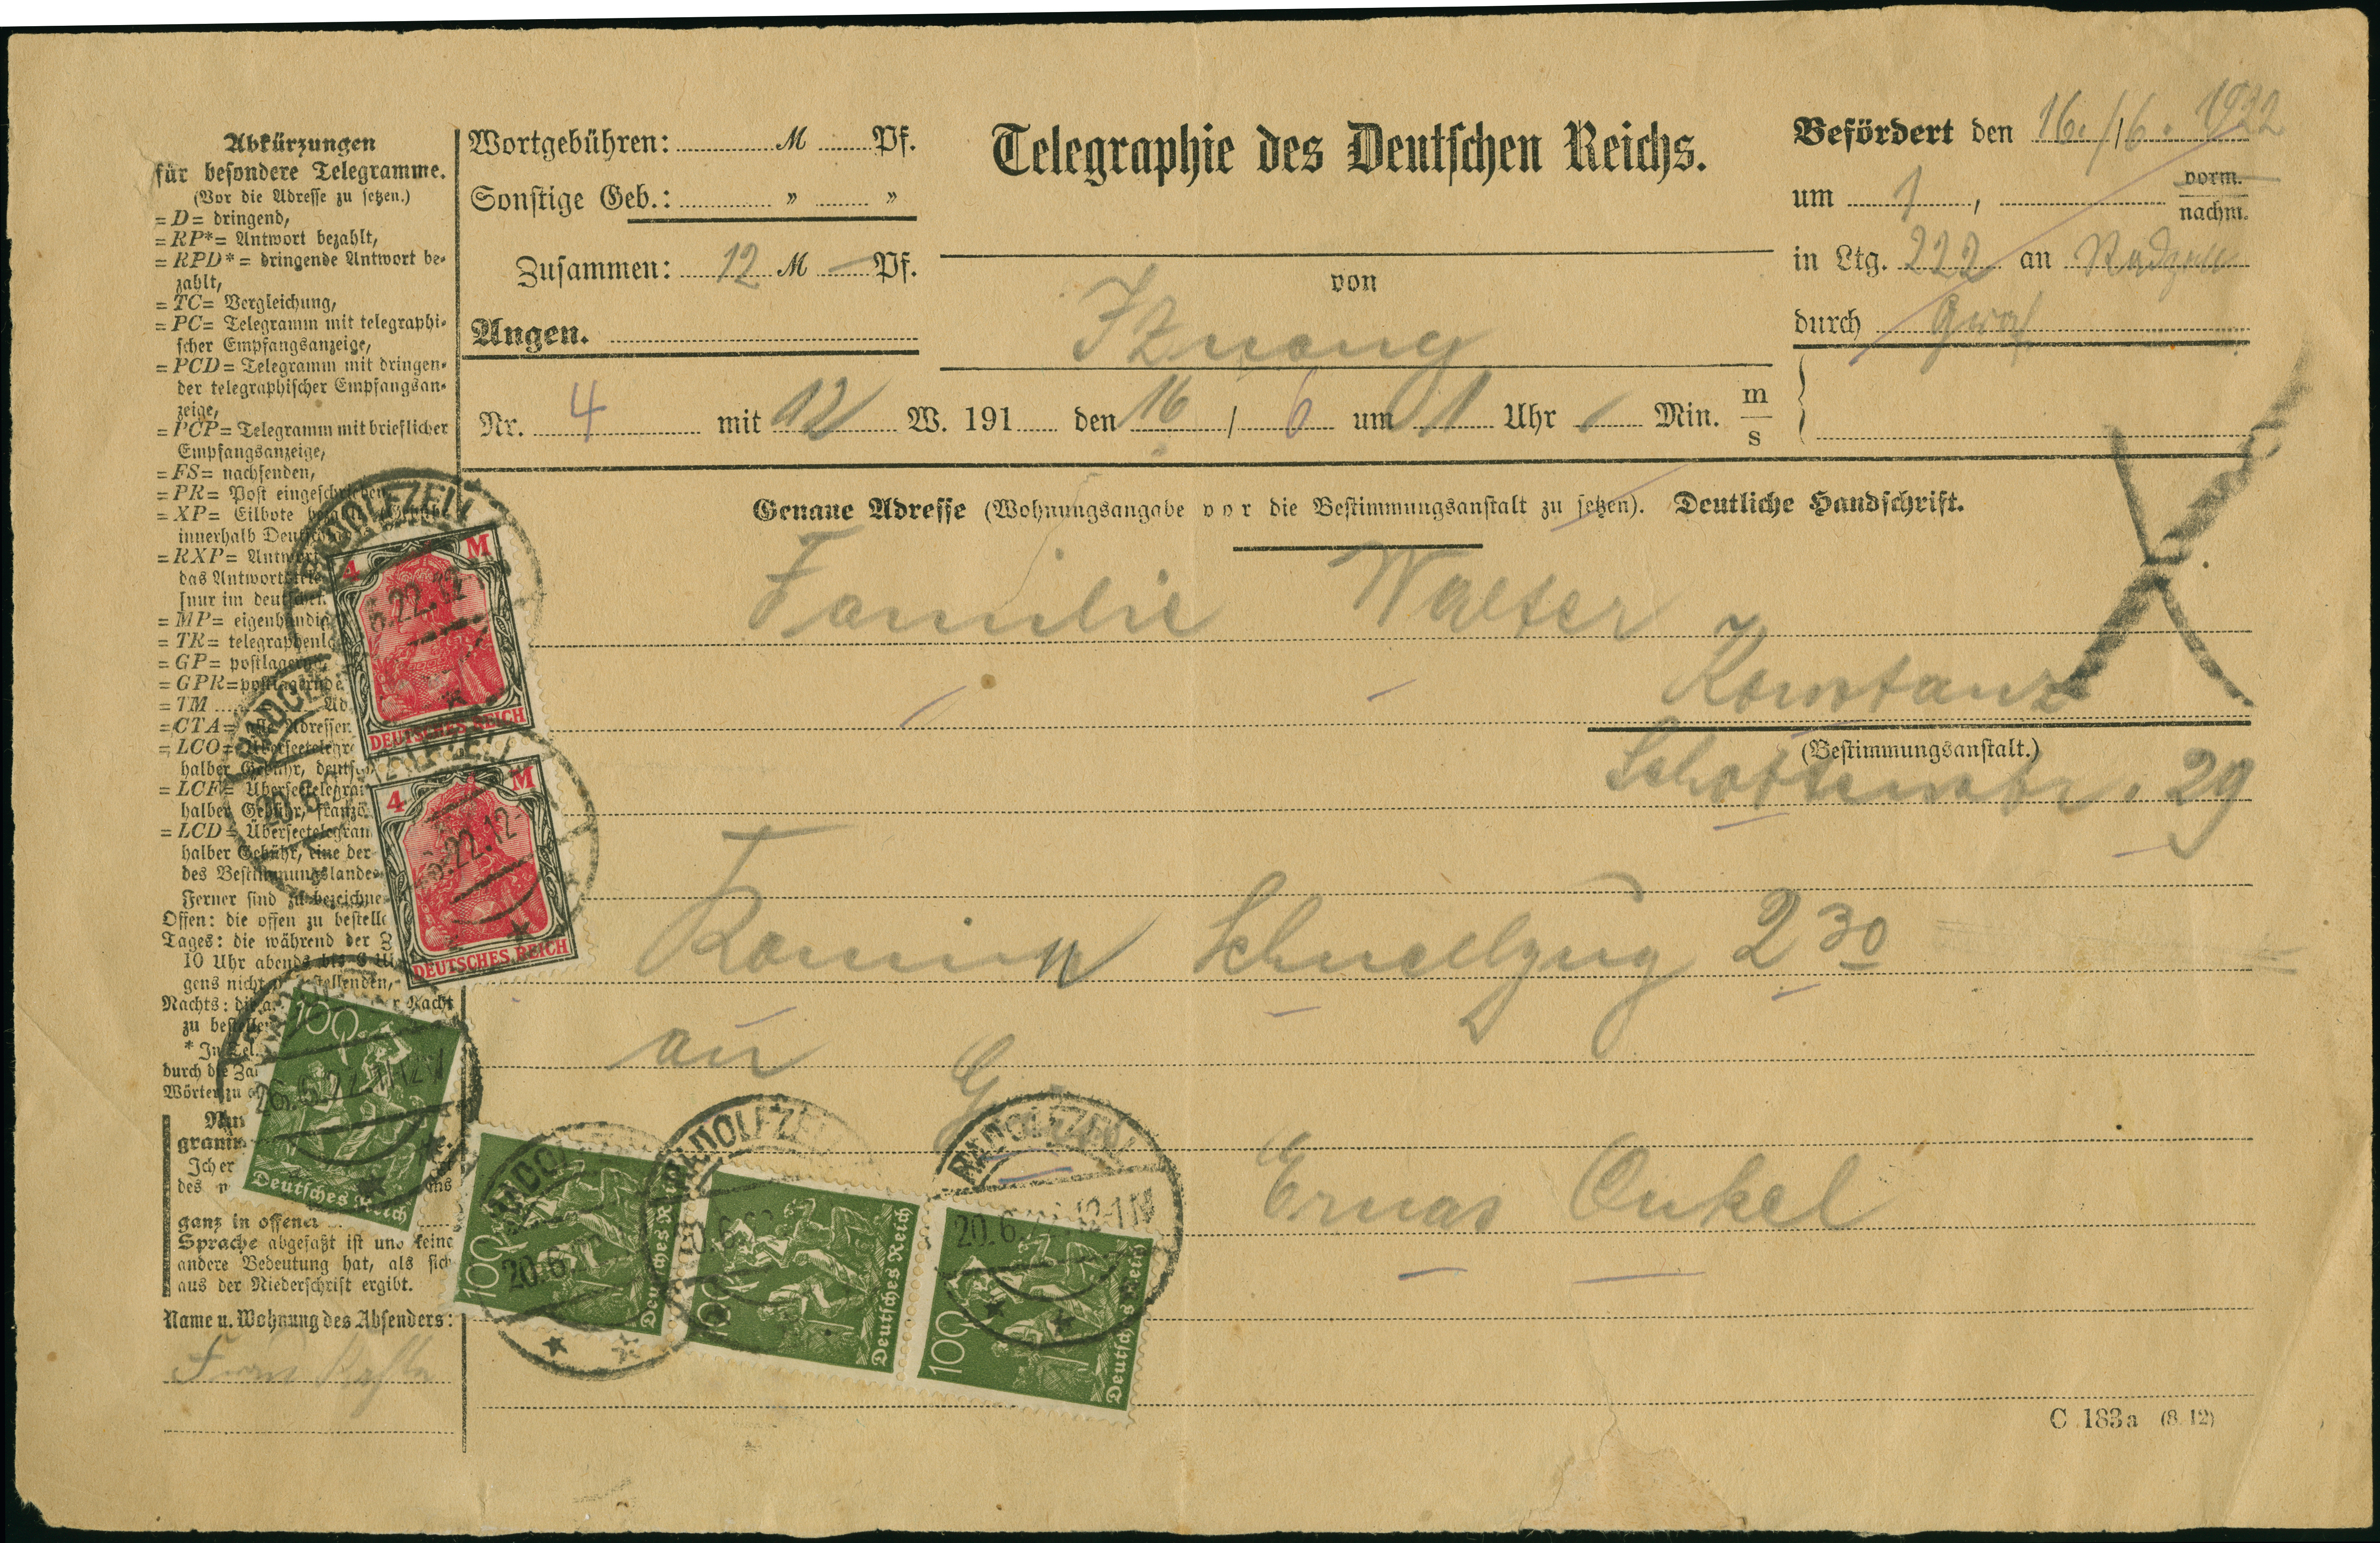 Abkürzungen
für besondere Telegramme.
(Vor die Adresse zu setzen.)
=D= dringend,
=RP*= Antwort bezahlt,
=RPD*= dringende Antwort be-
zahlt,
=TC= Vergleichung,
=PC= Telegramm mit telegraphi-
scher Empfangsanzeige,
=PCD= Telegramm mit dringen-
der telegraphischer Empfangsan-
zeige,
=PCP= Telegramm mit brieflicher
Empfangsanzeige,
=FS= nachsenden,
=PR= Post eingeschrieben
=XP= Eilbote
innerhalb
=RXP=
das Antwort
[nur im deutschen
=MP= eigenhändig
=TR=
=GP= postlagernd
=GPR=postlagernde
=TM ..... Ad
=CTA= alle Adressen
=LCO= Überseetelegr
halber Gebühr,
=LCF= Überseetelegra
halber Gebühr,
=LCD= Überseetelegram
halber Gebühr, eine der
des Bestimmungslandes
Ferner sind zu bezeichne
Offen: die offen zu bestelle
Tages: die während der
10 Uhr abends bis 6
gens nicht zu bestellenden,
Nachts: Nacht
zu bestelle
* In Tel.
durch die
Wörter zu
gramm
Ich er
des
ganz in offener
Sprache abgefaßt ist und keine
andere Bedeutung hat, als sich
aus der Niederschrift ergibt.
Name u. Wohnung des Absenders:
Wortgebühren: M Pf.
Sonstige Geb.: " "
Zusammen: 12 M — Pf.
Angen.
Telegraphie des Deutschen Reichs.
von
Iznang
Befördert den 16./6. 1922
um 1, vorm.
nachm.
in Ltg. 222 an
durch Graf
Nr. 4 mit 12 W. 191 den 16 / 6 um 1 Uhr Min. m
s
Genaue Adresse (Wohnungsangabe vor die Bestimmungsanstalt zu setzen). Deutliche Handschrift.
Familie Walter
Konstanz
(Bestimmungsanstalt.)
Schottenstr. 29
Komm Schnellzug 2 30
an
Ernas Onkel
C 183a (8.12)
RADOLFZELL
4 M
6.22.12
DEUTSCHES REICH
4 M
6.22.12
DEUTSCHES REICH
100
Deutsches Reich
RADOLFZELL
100
20.6
Deutsches Reich
RADOLFZELL
100
Deutsches Reich
RADOLFZELL
20.6. 12-1 N
100
Deutsches Reich